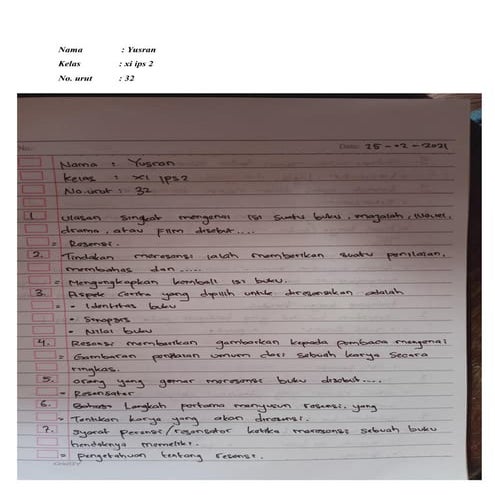 Nama : Yusran
Kelas : xi ips 2
No. urut : 32
No.
Date: 25 - 02 - 2021
Nama : Yusran
Kelas : XI IPS 2
No. urut : 32
1. Ulasan singkat mengenai isi suatu buku, majalah, novel,
drama, atau film disebut....
= Resensi.
2. Tindakan meresensi ialah memberikan suatu penilaian,
membahas dan .....
= Mengungkapkan kembali isi buku.
3. Aspek cerita yang dipilih untuk diresensikan adalah
= • Identitas buku
• Sinopsis
• Nilai buku
4. Resensi memberikan gambarkan kepada pembaca mengenai
= Gambaran penilaian umum dari sebuah karya secara
ringkas.
5. orang yang gemar meresensi buku disebut.....
= Resensator
6. Langkah pertama menyusun resensi, yang
= Tentukan karya yang akan diresensi.
7. Syarat peresensi/resensator ketika meresensi sebuah buku
hendaknya memeliki.
= pengetahuan tentang resensi.